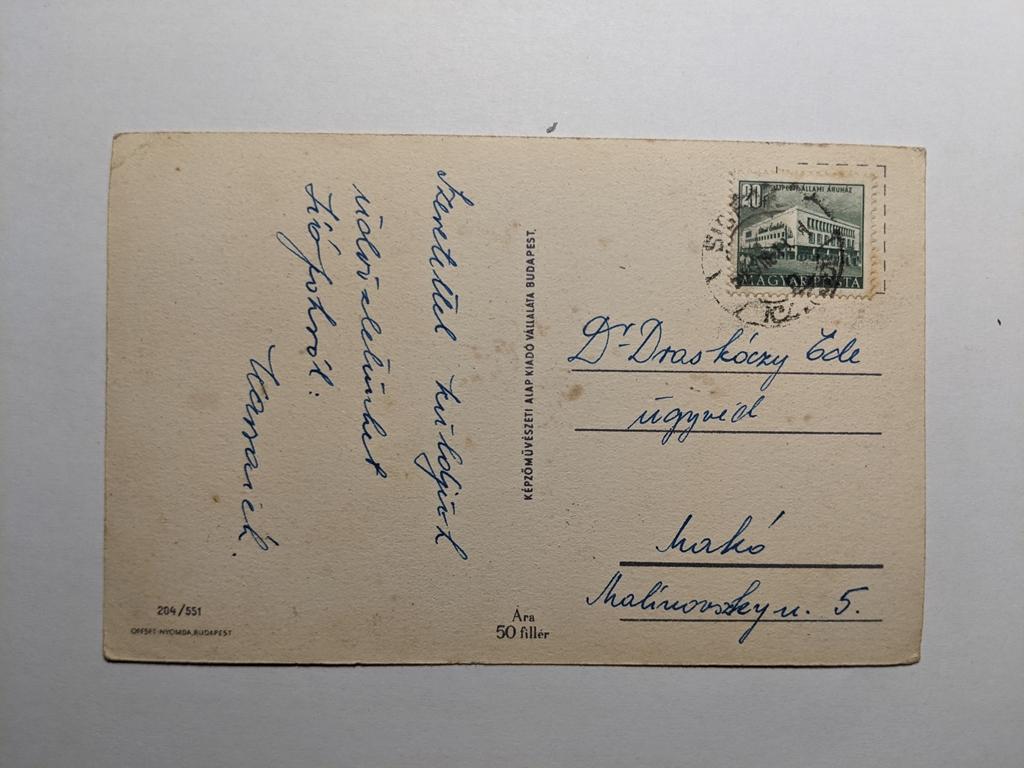 Szeretettel küldjük
üdvözletünket
Siófokról:
KÉPZŐMŰVÉSZETI ALAP KIADÓ VÁLLALATA BUDAPEST.
204/551
OFFSET-NYOMDA, BUDAPEST
Ára
50 fillér
20f
ÁLLAMI ÁRUHÁZ
MAGYAR POSTA
Dr Draskóczy Ede
ügyvéd
Makó
Malinovszky u. 5.